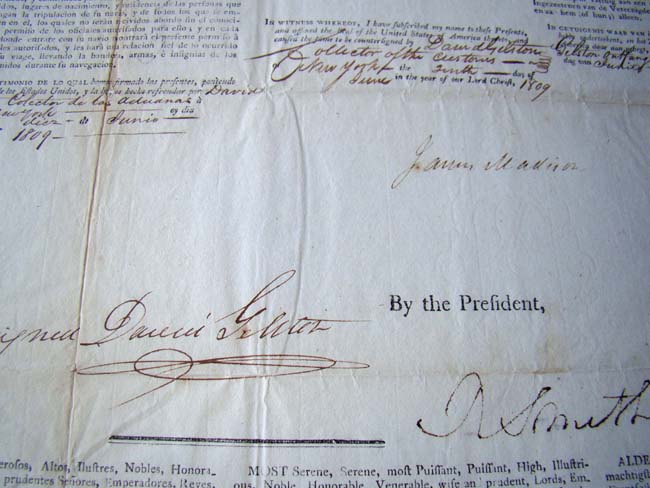 dos, ingreso de nacimiento, y
gan la tripulacion de su navio
en el, los quales no seran recividos abordo sin el conoci-
permiso de los oficiales autorizados para ello; y en cada
donde entrare con su navio mostrará el presente permiso à
les autorizados, y les hará una relacion fiel de lo ocurrido
u viage, llevando la bandera, armas, é insignias de los
nidos durante su navegacion.
TIMONIO DE LO QUAL he firmado las presentes, poniendo
de los Estados Unidos, y las he hecho refrendar por David
Colector de las Aduanas á
ew York oy dia
diez - de Junio
1809-
IN WITNESS WHEREOF, I have subscribed my name to these Presents,
and affixed the Seal of the United States of America thereto, and
caused the same to be countersigned by David Gelston
Collector of the Customs - at
New York the Tenth - day of
June in the year of our Lord Christ, 1809
IN GETUIGENIS WAAR VAN
James Madison
By the President,
igned David Gelston
R Smith
erosos, Altos, Ilustres, Nobles, Honora-
prudentes Señores, Emperadores, Reyes,
MOST Serene, Serene, most Puissant, Puissant, High, Illustri-
ous, Noble, Honorable, Venerable, wise and prudent, Lords, Em-
ALDE
machtigst